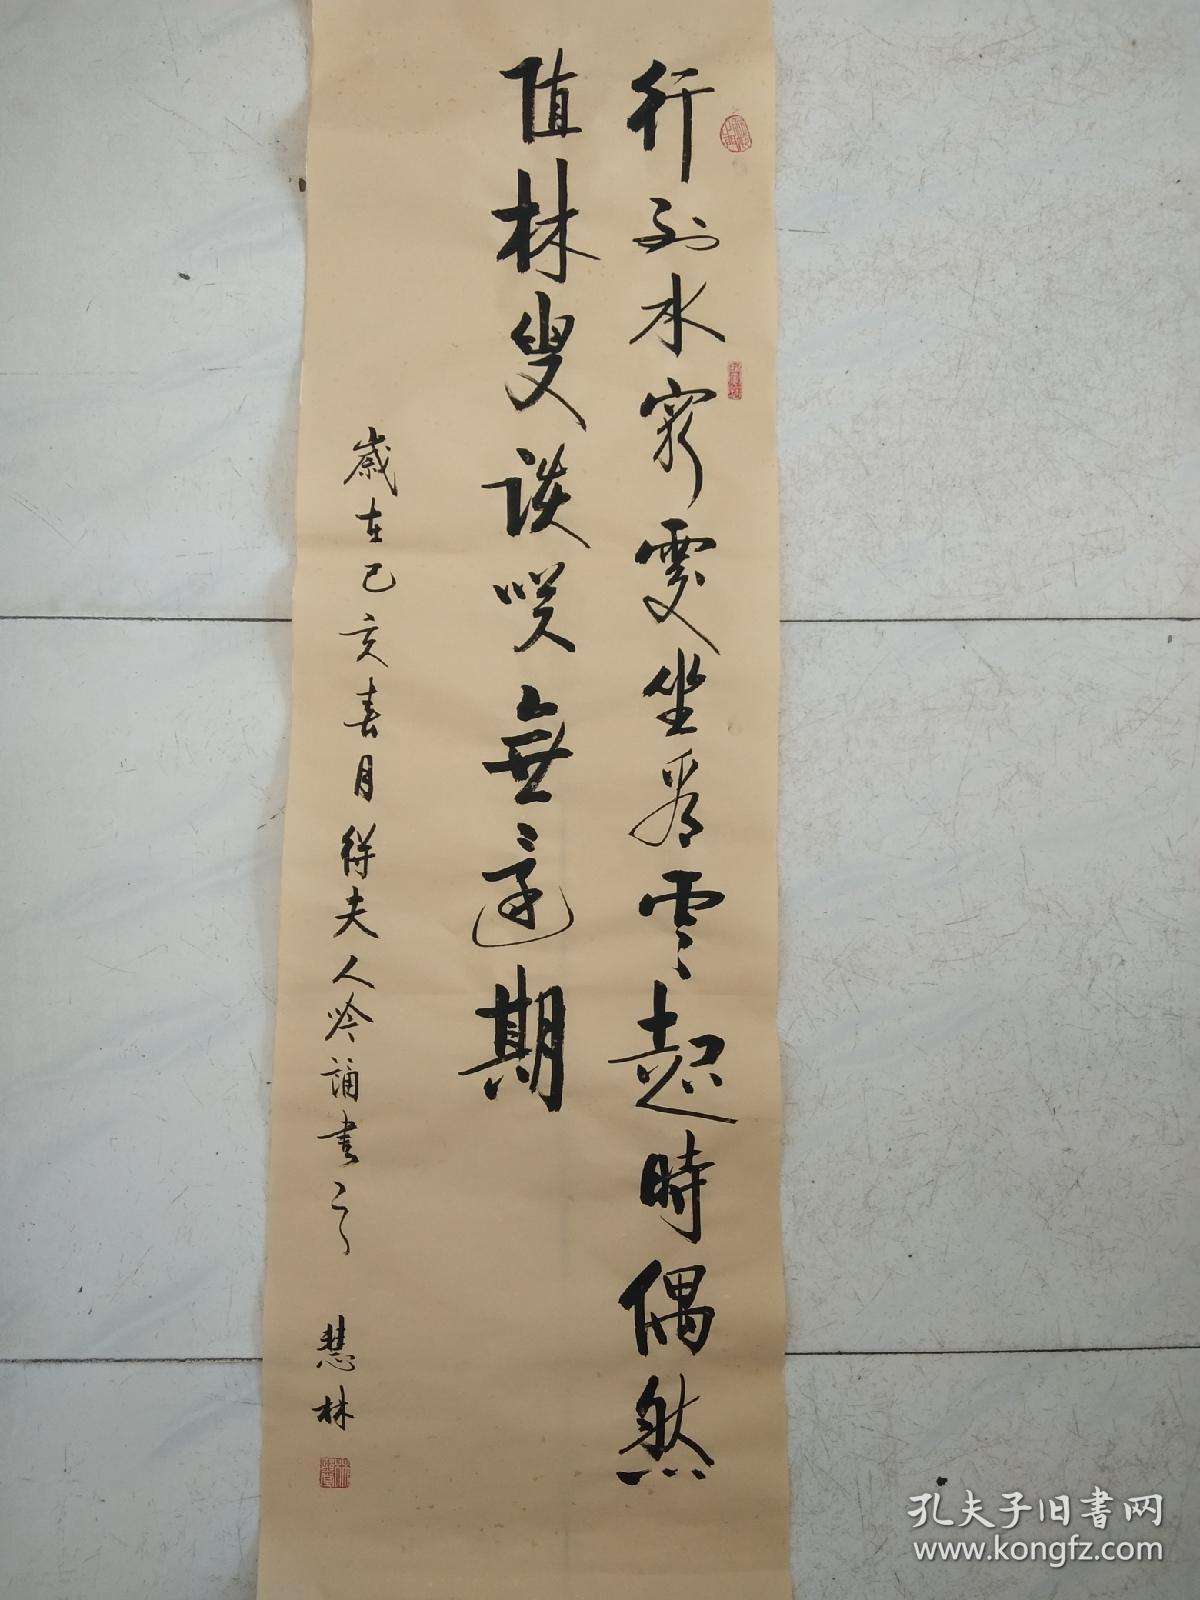 行到水窮處坐看雲起時偶然
值林叟談咲無還期
歲在己亥春月得夫人吟誦書之
慧林
孔夫子旧书网
www.kongfz.com